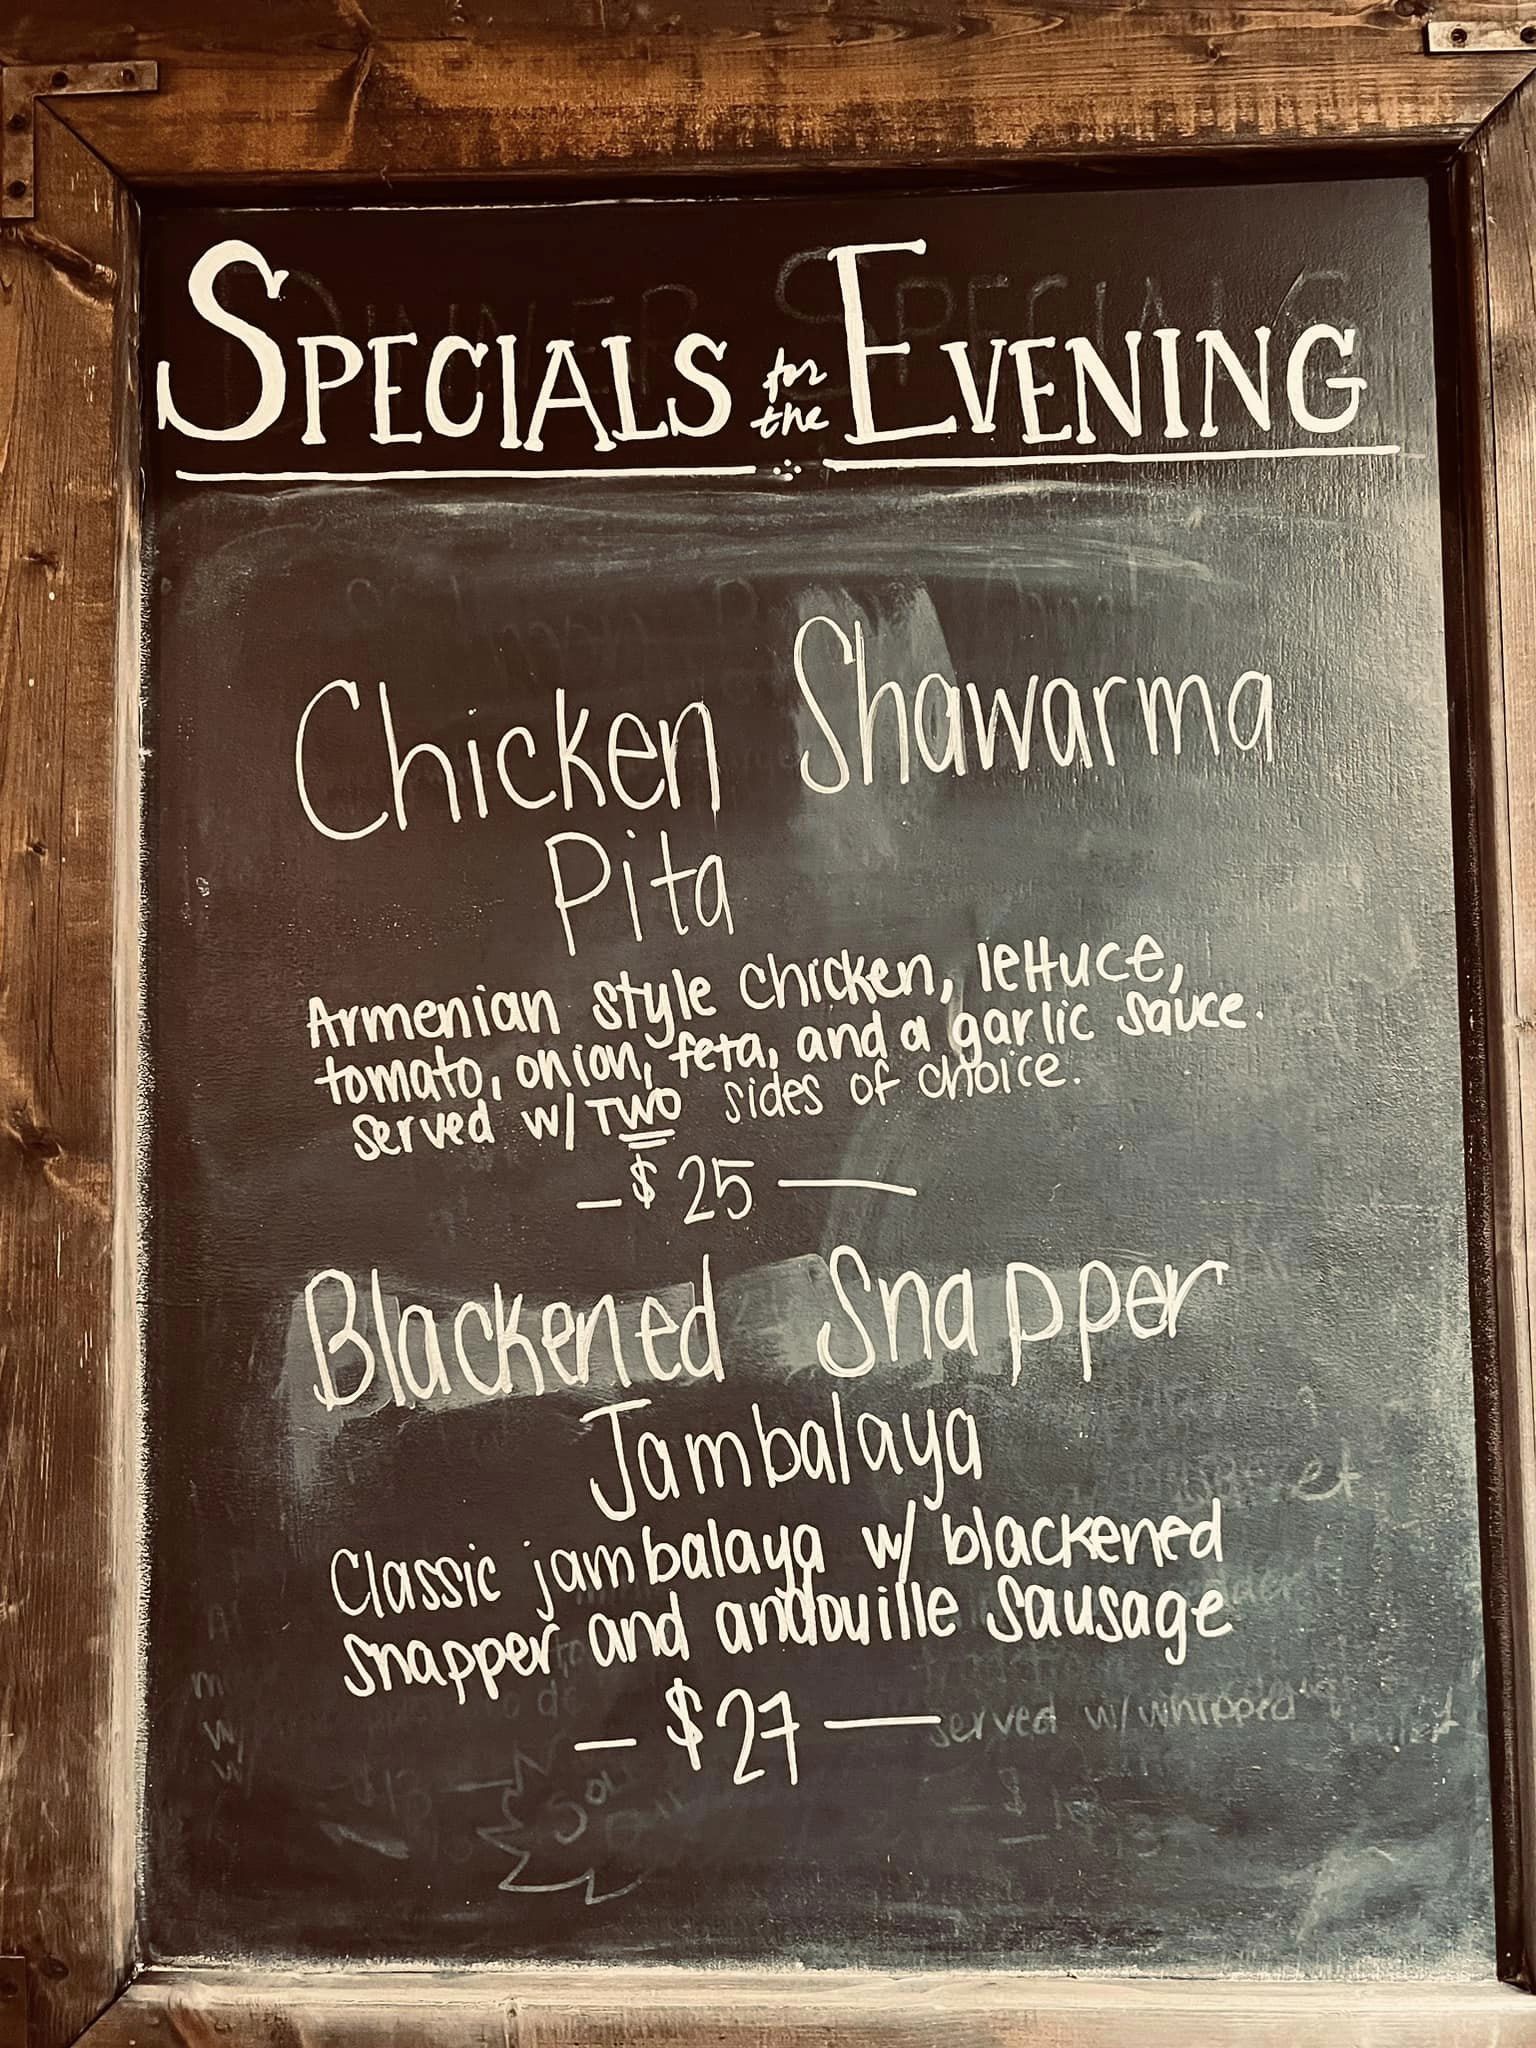 SPECIALS for the EVENING
DINNER SPECIALS
Chicken Shawarma
Pita
Armenian style chicken, lettuce,
tomato, onion, feta, and a garlic sauce.
served w/ TWO sides of choice.
- $25 —
Blackened Snapper
Jambalaya
Classic jambalaya w/ blackened
snapper and andouille sausage
- $27 —
served w/ whipped